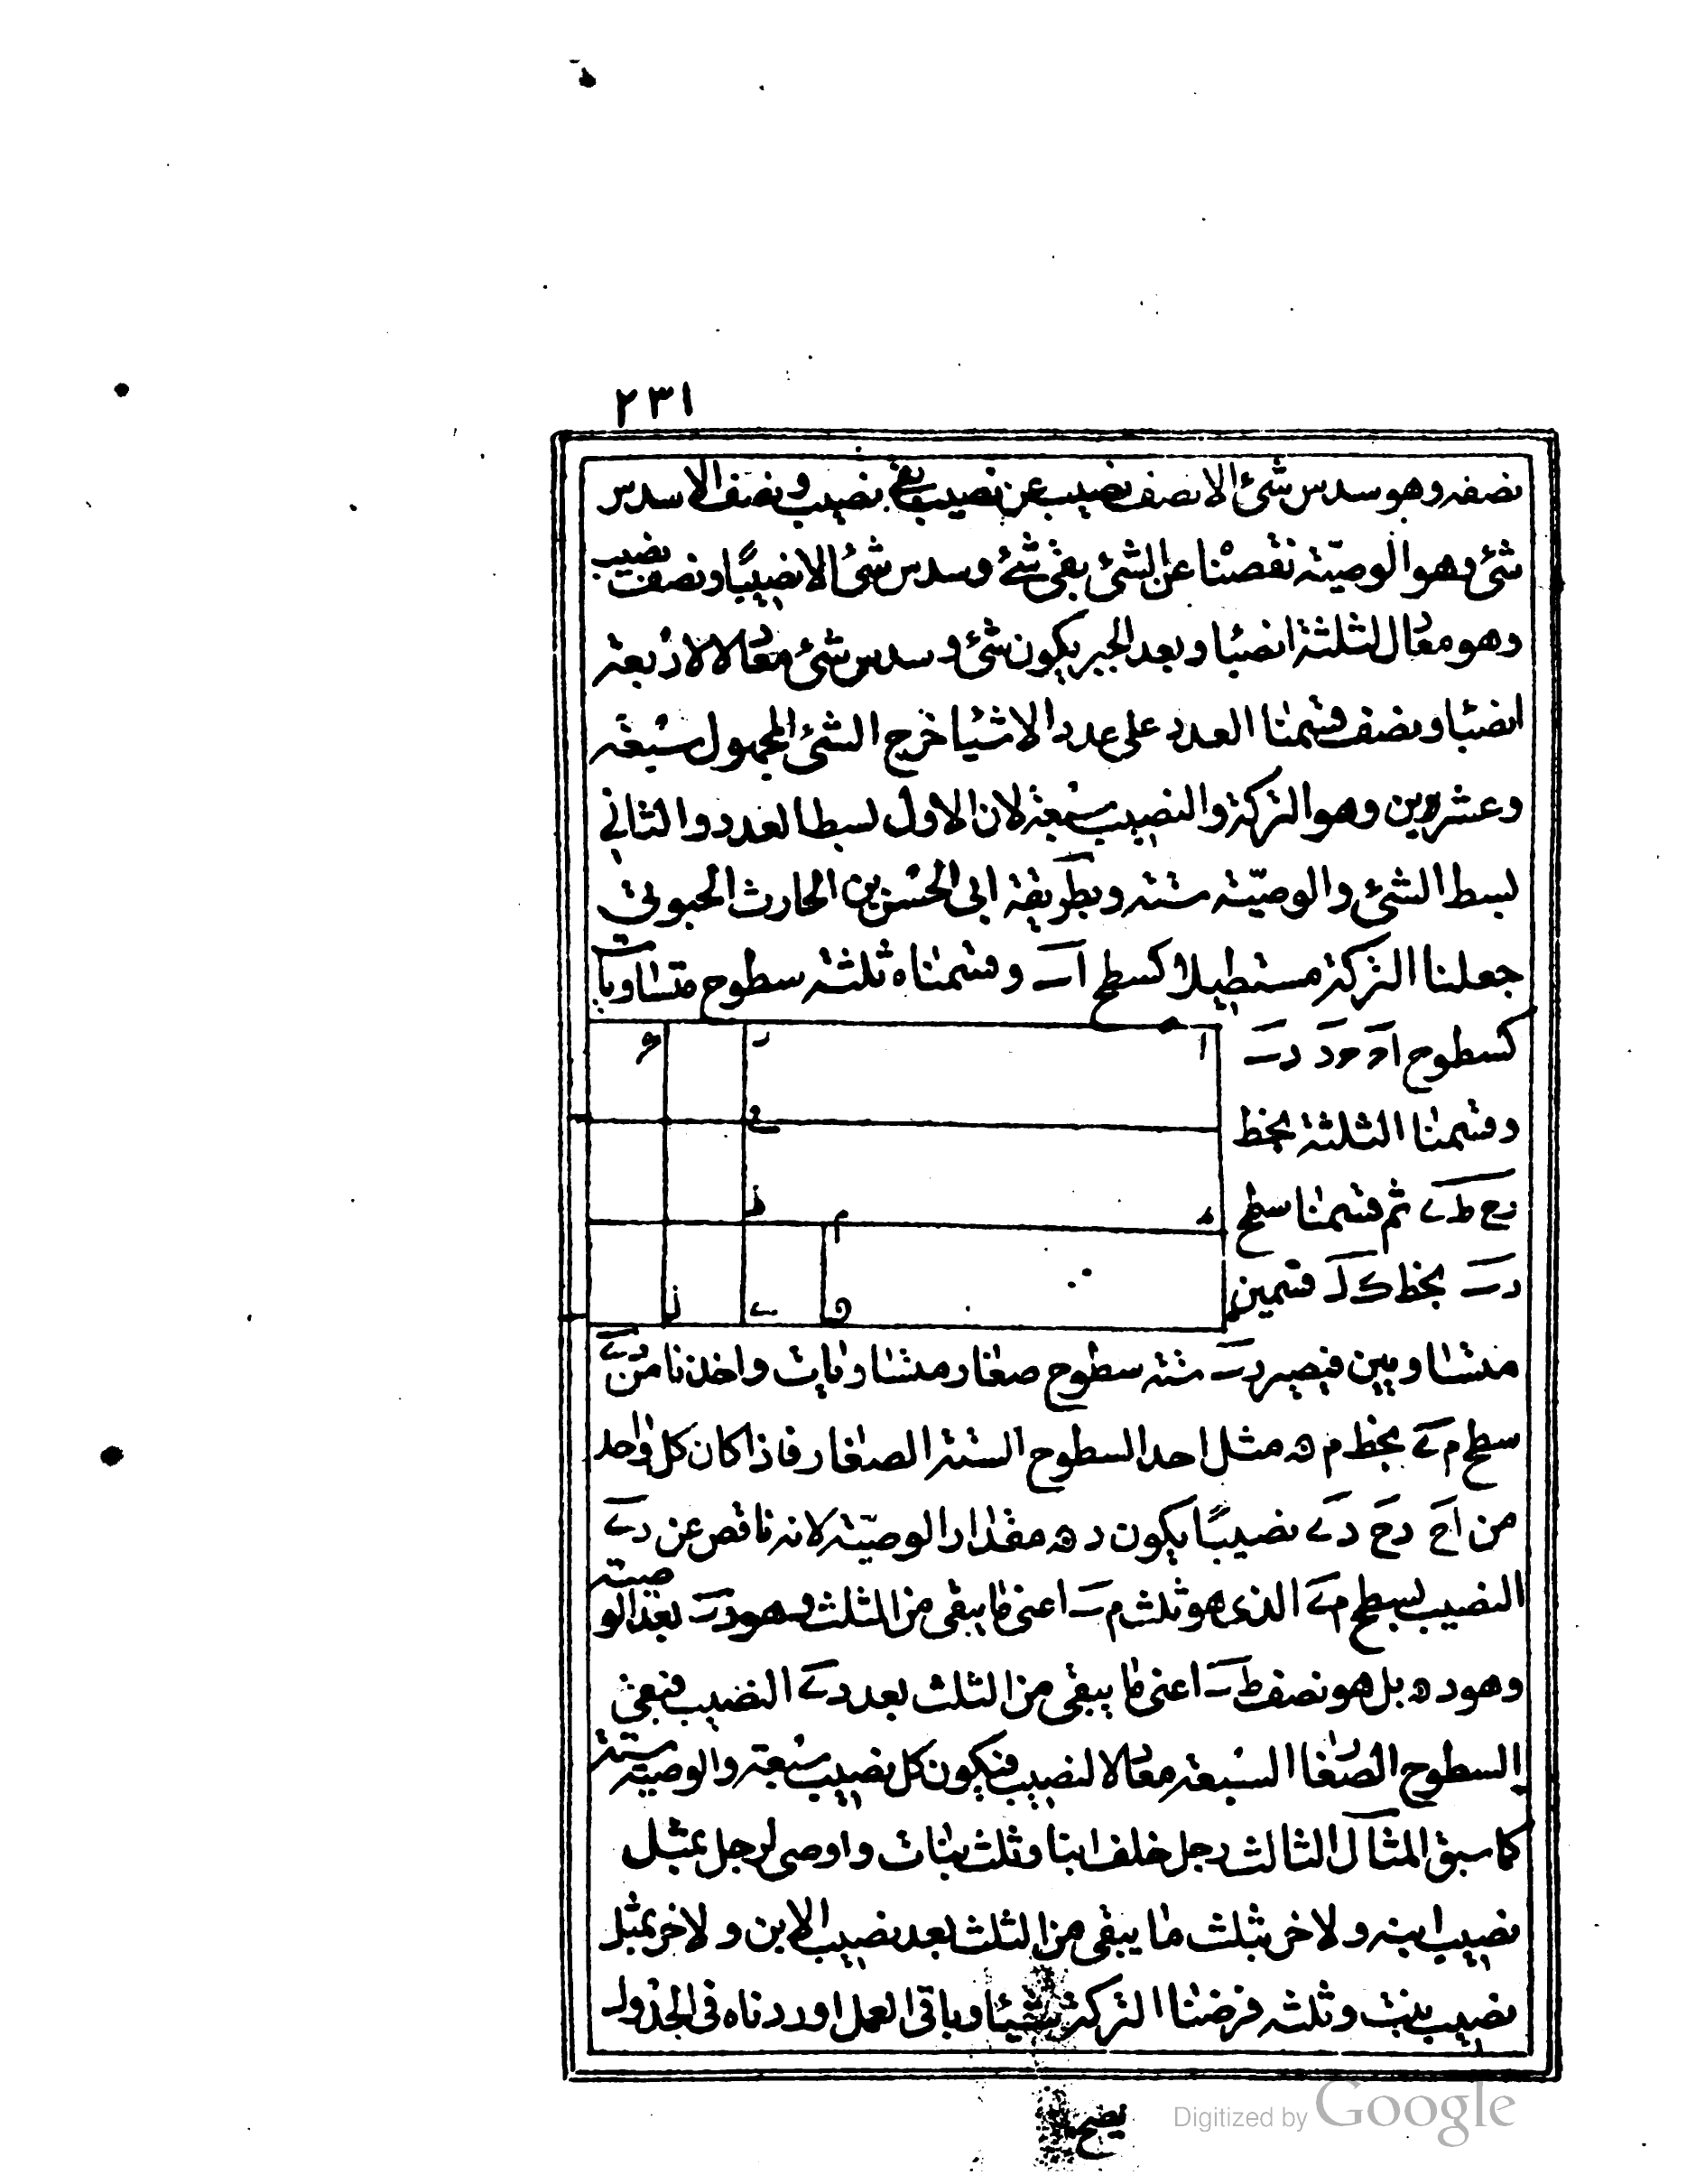 ٢٣١
نصفه وهو سدس شئ الا نصف نصيب عن نصيب بقى نصيب ونصف الا سدس
شئ وهو الوصيّة نقصنا عن الشئ بقى شئ وسدس شئ الا نصيبًا ونصف نصيب
وهو معادل لثلثة انصبا وبعد الجبر يكون شئ و سدس شئ معادلا لاربعة
انصبا ونصف قسمنا العدد على عدد الاشيا خرج الشئ المجهول سبعة
وعشرين وهو التركة والنصيب سبعة لان الاول لبسط العدد والثانى
لبسط الشئ والوصيّة ستة وبطريقة ابى الحسن بن الحارث الحبوبى
جعلنا التركة مستطيلا كسطح اب وقسمناه ثلثة سطوح متساويات
كسطوح اح حد دب
وقسمنا الثلثة بخط
رح ط ى ثم قسمنا سطح
دب بخط ك ل قسمين
متساويين فيصير دب ستة سطوح صغار متساويات واخذنا من دى
سطح م ى بخط م ه مثل احد السطوح الستة الصغار فاذا كان كل واحد
من اح دح دى نصيبًا يكون د ه مقدار الوصيّة لانه ناقص عن دى
النصيب بسطح م ى الذى هو ثلث م ب اعنى ما يبقى من الثلث وهو دب بعد الوصية
وهو د ه بل هو نصف ط ب اعنى ما يبقى من الثلث بعد دى النصيب فبقى
السطوح الصغار السبعة معادلا لنصيب فيكون كل نصيب سبعة والوصية ستة
كما سبق المثال الثالث رجل خلف ابنا وثلث بنات واوصى لرجل بمثل
نصيب ابنه ولاخر بثلث ما يبقى من الثلث بعد نصيب الابن ولاخر بمثل
نصيب بنت وثلثه فرضنا التركة شيئا وباقى العمل اوردناه فى الجدول
Digitized by Google